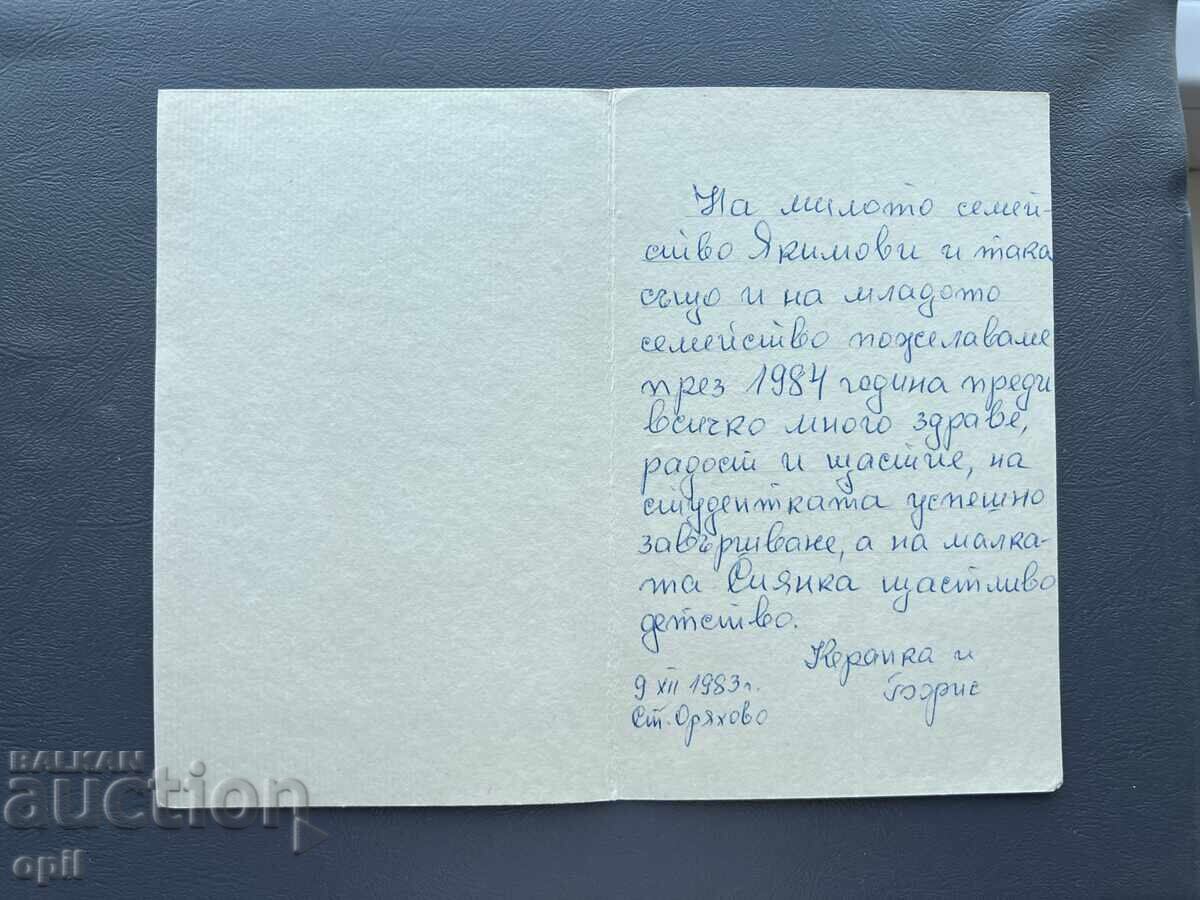 На милото семей-
ство Якимови и така
също и на младото
семейство пожелаваме
през 1984 година преди
всичко много здраве,
радост и щастие, на
студентката успешно
завършване, а на малка-
та Сиянка щастливо
детство.
Керанка и
9 XII 1983 г.
Ст. Оряхово
BALKAN
auction
opil